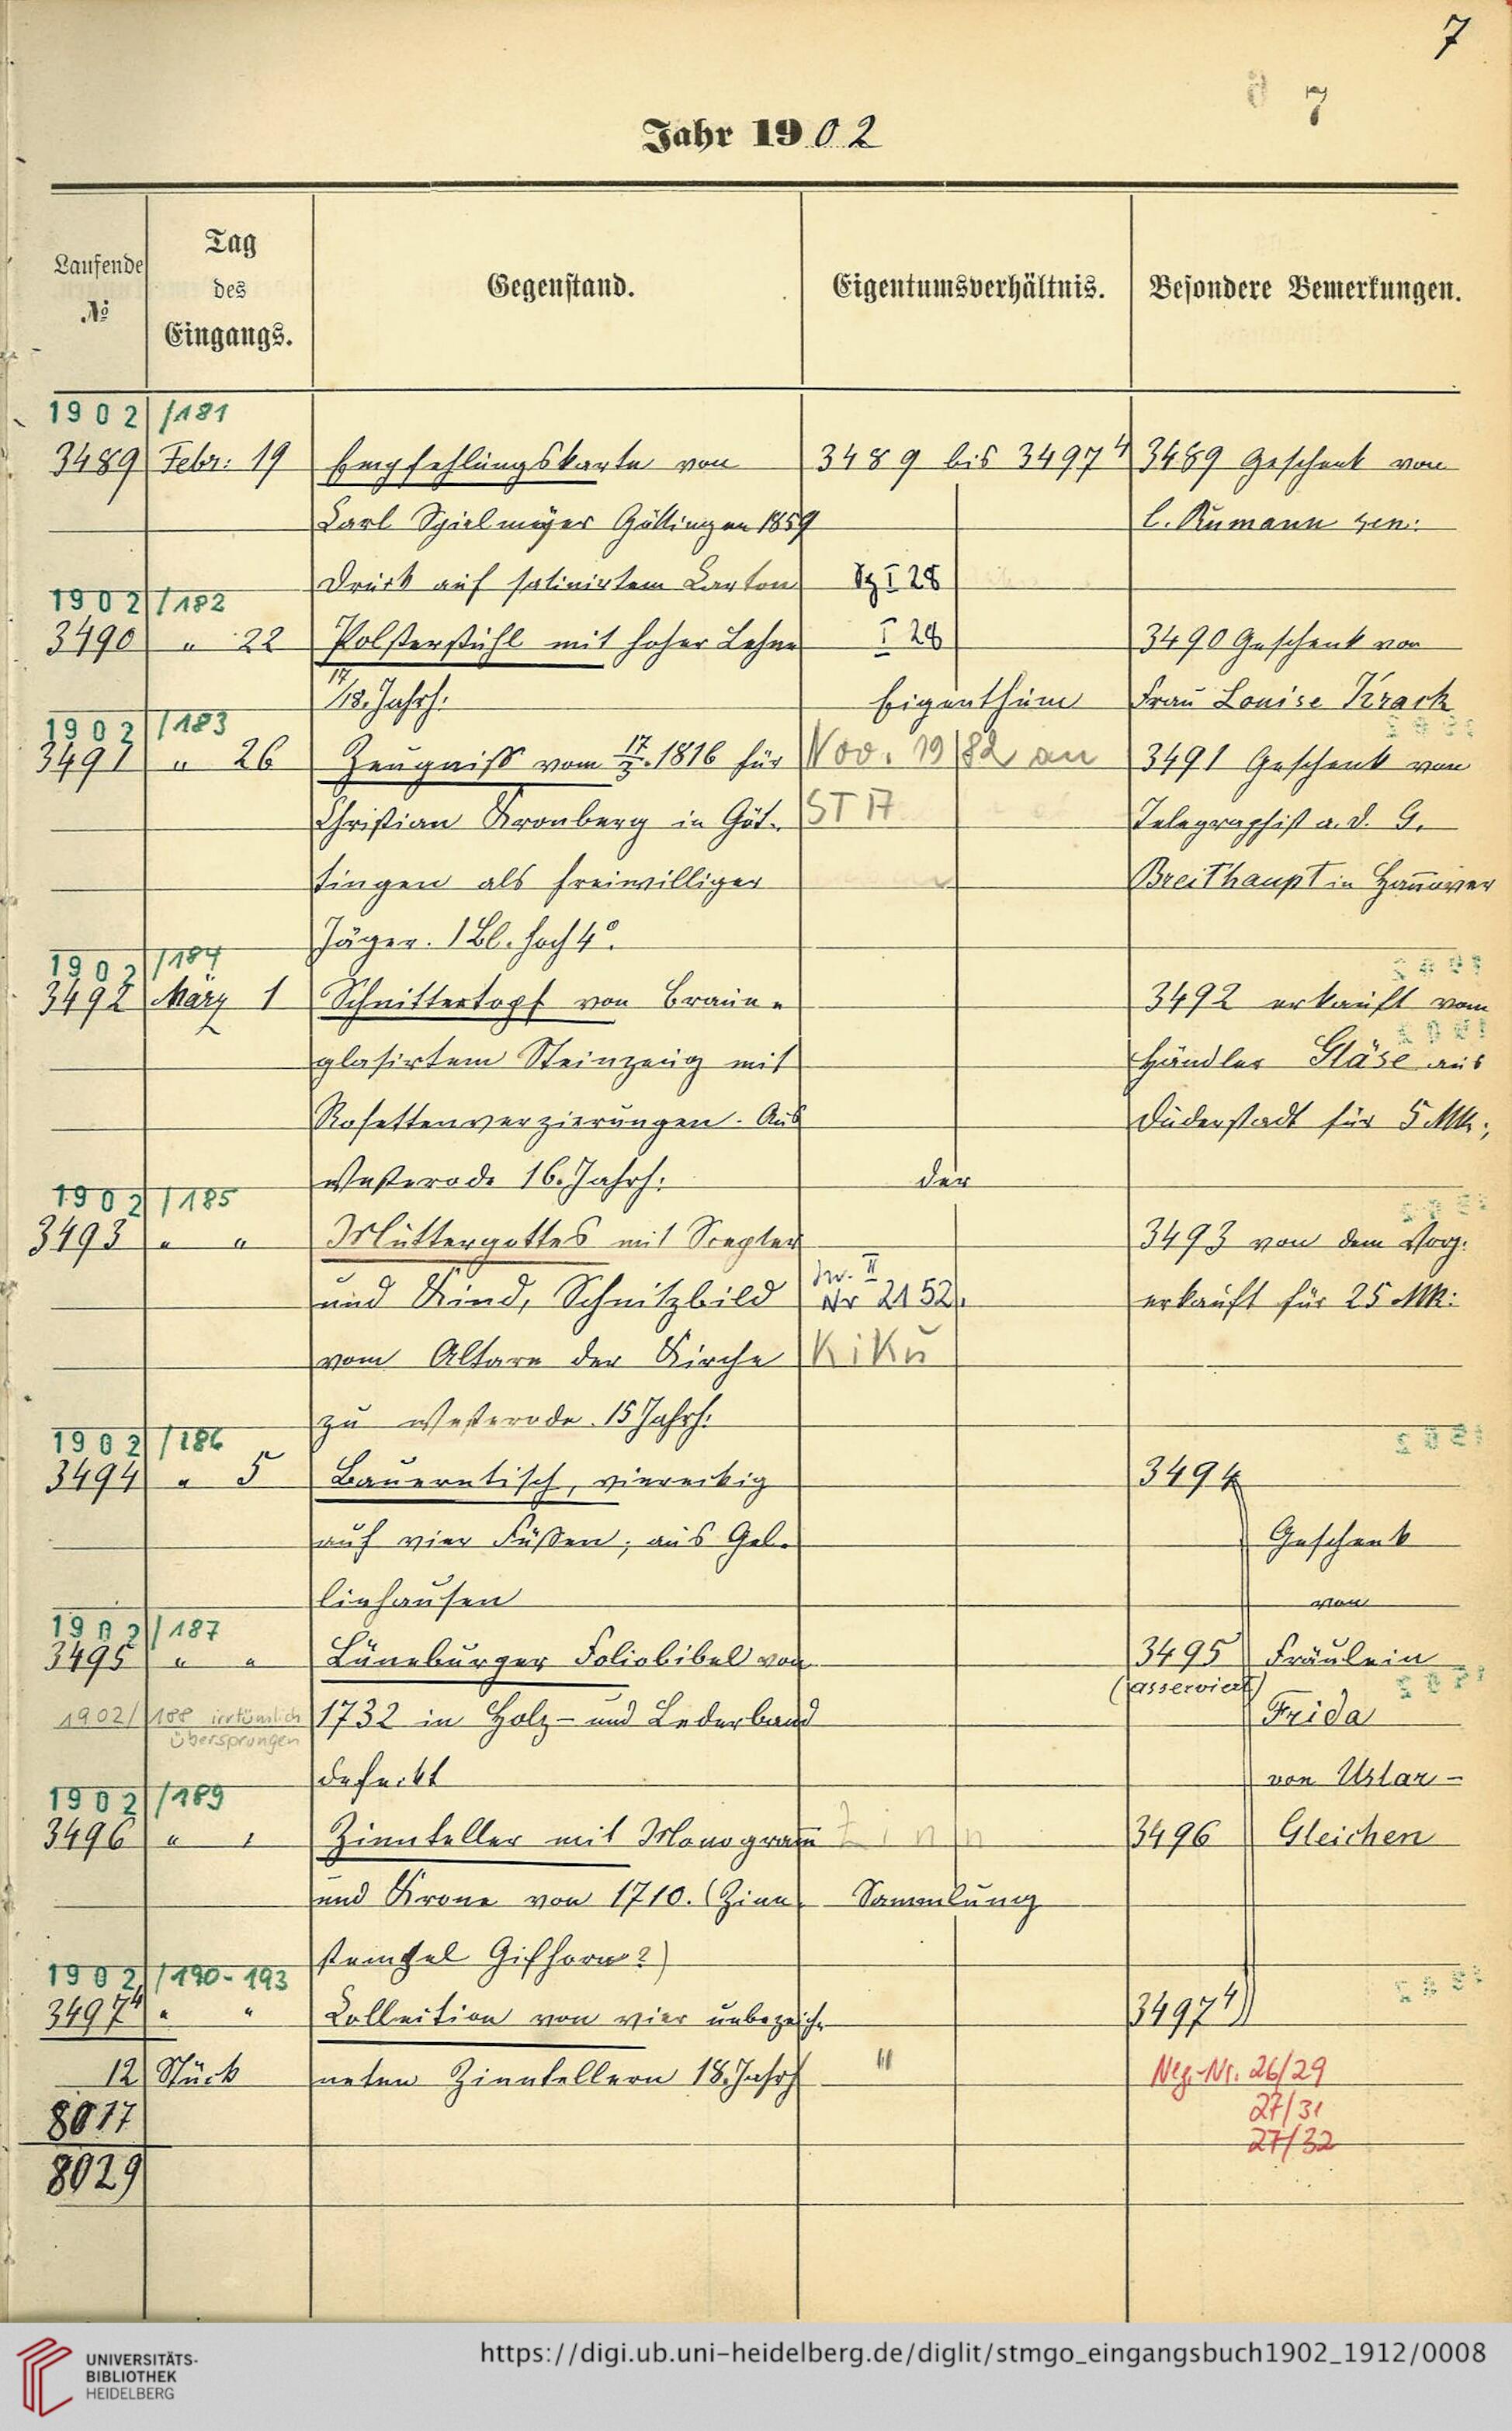 7
7
Jahr 1902
Laufende
№
Tag
des
Eingangs.
Gegenstand.
Eigentumsverhältnis.
Besondere Bemerkungen.
1902/181
3489 Febr: 19 Empfehlungskarte von 3489 bis 3497⁴ 3489 Geschenk von
Carl Spielmeyer Göttingen 1859 C. Rumann sen:
Druck auf satinirtem Carton I 28
1902/182
3490 " 22 Polsterstuhl mit hoher Lehne I 28 3490 Geschenk von
17/18. Jahrh: Eigenthum Frau Louise Krack
1902/183
3491 " 26 Zeugniss vom 17/3. 1816 für Nov. 1982 an 3491 Geschenk von
Christian Kronberg in Göt- STA Telegraphist a. D. G.
tingen als freiwilliger Breithaupt in Hannover
Jäger. 1 Bl. hoch 4°.
1902/184
3492 März 1 Schnittertopf von braun- 3492 erkauft vom
glasirtem Steinzeug mit Händler Gläse aus
Rosettenverzierungen. Aus Duderstadt für 5 Mk.,
Westerode 16. Jahrh: der
1902/185
3493 " " Muttergottes mit Scepter 3493 von dem Vorg.
und Kind, Schnitzbild Inv. II Nr 2152. erkauft für 25 Mk:
vom Altare der Kirche KiKu
zu Westerode. 15 Jahrh:
1902/186
3494 " 5 Bauerntisch, viereckig 3494
auf vier Füßen, aus Gel- Geschenk
liehausen von
1902/187
3495 " " Lüneburger Foliobibel von 3495 Fräulein
(asserviert)
1902/188 irrtümlich übersprungen 1732 in Holz- und Lederband Frida
defekt von Uslar-
1902/189
3496 " " Zinnteller mit Monogram̄ Zinn 3496 Gleichen
und Krone von 1710. (Zinn- Sammlung
stempel Gifhorn?)
1902/190-193
3497⁴ " " Collection von vier unbezeich- 3497⁴
12 Stück neten Zinntellern 18. Jahrh " Neg.-Nr. 26/29
8017 27/31
27/32
8029
UNIVERSITÄTS-
BIBLIOTHEK
HEIDELBERG
https://digi.ub.uni-heidelberg.de/diglit/stmgo_eingangsbuch1902_1912/0008